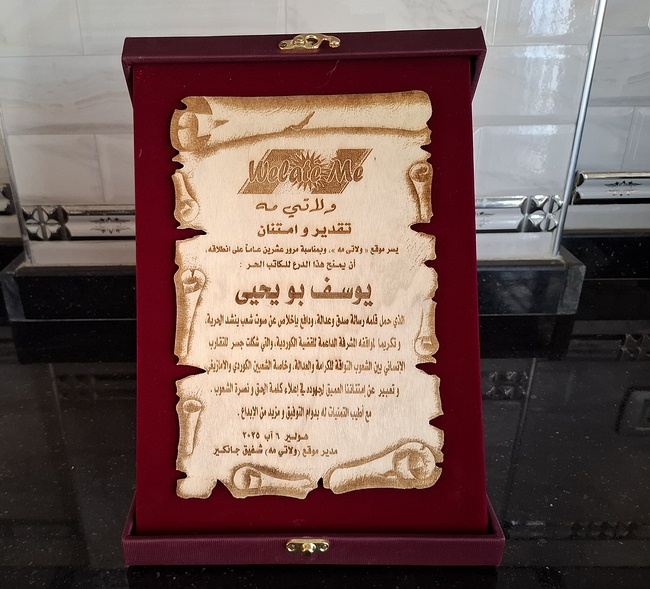 Welate Me
ولاتي مه
تقدير و امتنان
يسر موقع « ولاتى مه »، وبمناسبة مرور عشرين عـامـاً على انطلاقه،
أن يمنح هذا الدرع للكاتب الحـر :
يوسف بو يحيى
الذي حمل قلمه رسالة صدق وعدالة، ودافع بإخلاص عن صوت شعب ينشد الحرية،
و تكريما لمواقفه الشرفة الداعمة للقضية الكوردية، والتي شكلت جسر للتقارب
الإنساني بين الشعوب التواقة للكرامة والعدالة، وخاصة الشعبين الكوردي والامازيغي
و تعبير عن إمتناننا العميق لجهوده في إعلاء كلمة الحق و نصرة الشعوب .
مع أطيب التمنيات له بدوام التوفيق و مزيد من الابداع .
هولير ٦ آب ٢٠٢٥
مدير موقع (ولاتي مه) شفيق جانكير